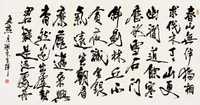 春山無伴獨相
求伐木丁丁山更
幽澗道餘寒
歷冰雪石門
斜日到林丘不
貪夜識金銀
氣遠害朝看
麋鹿遊乘興
杳然迷出處對
君疑是泛虛舟